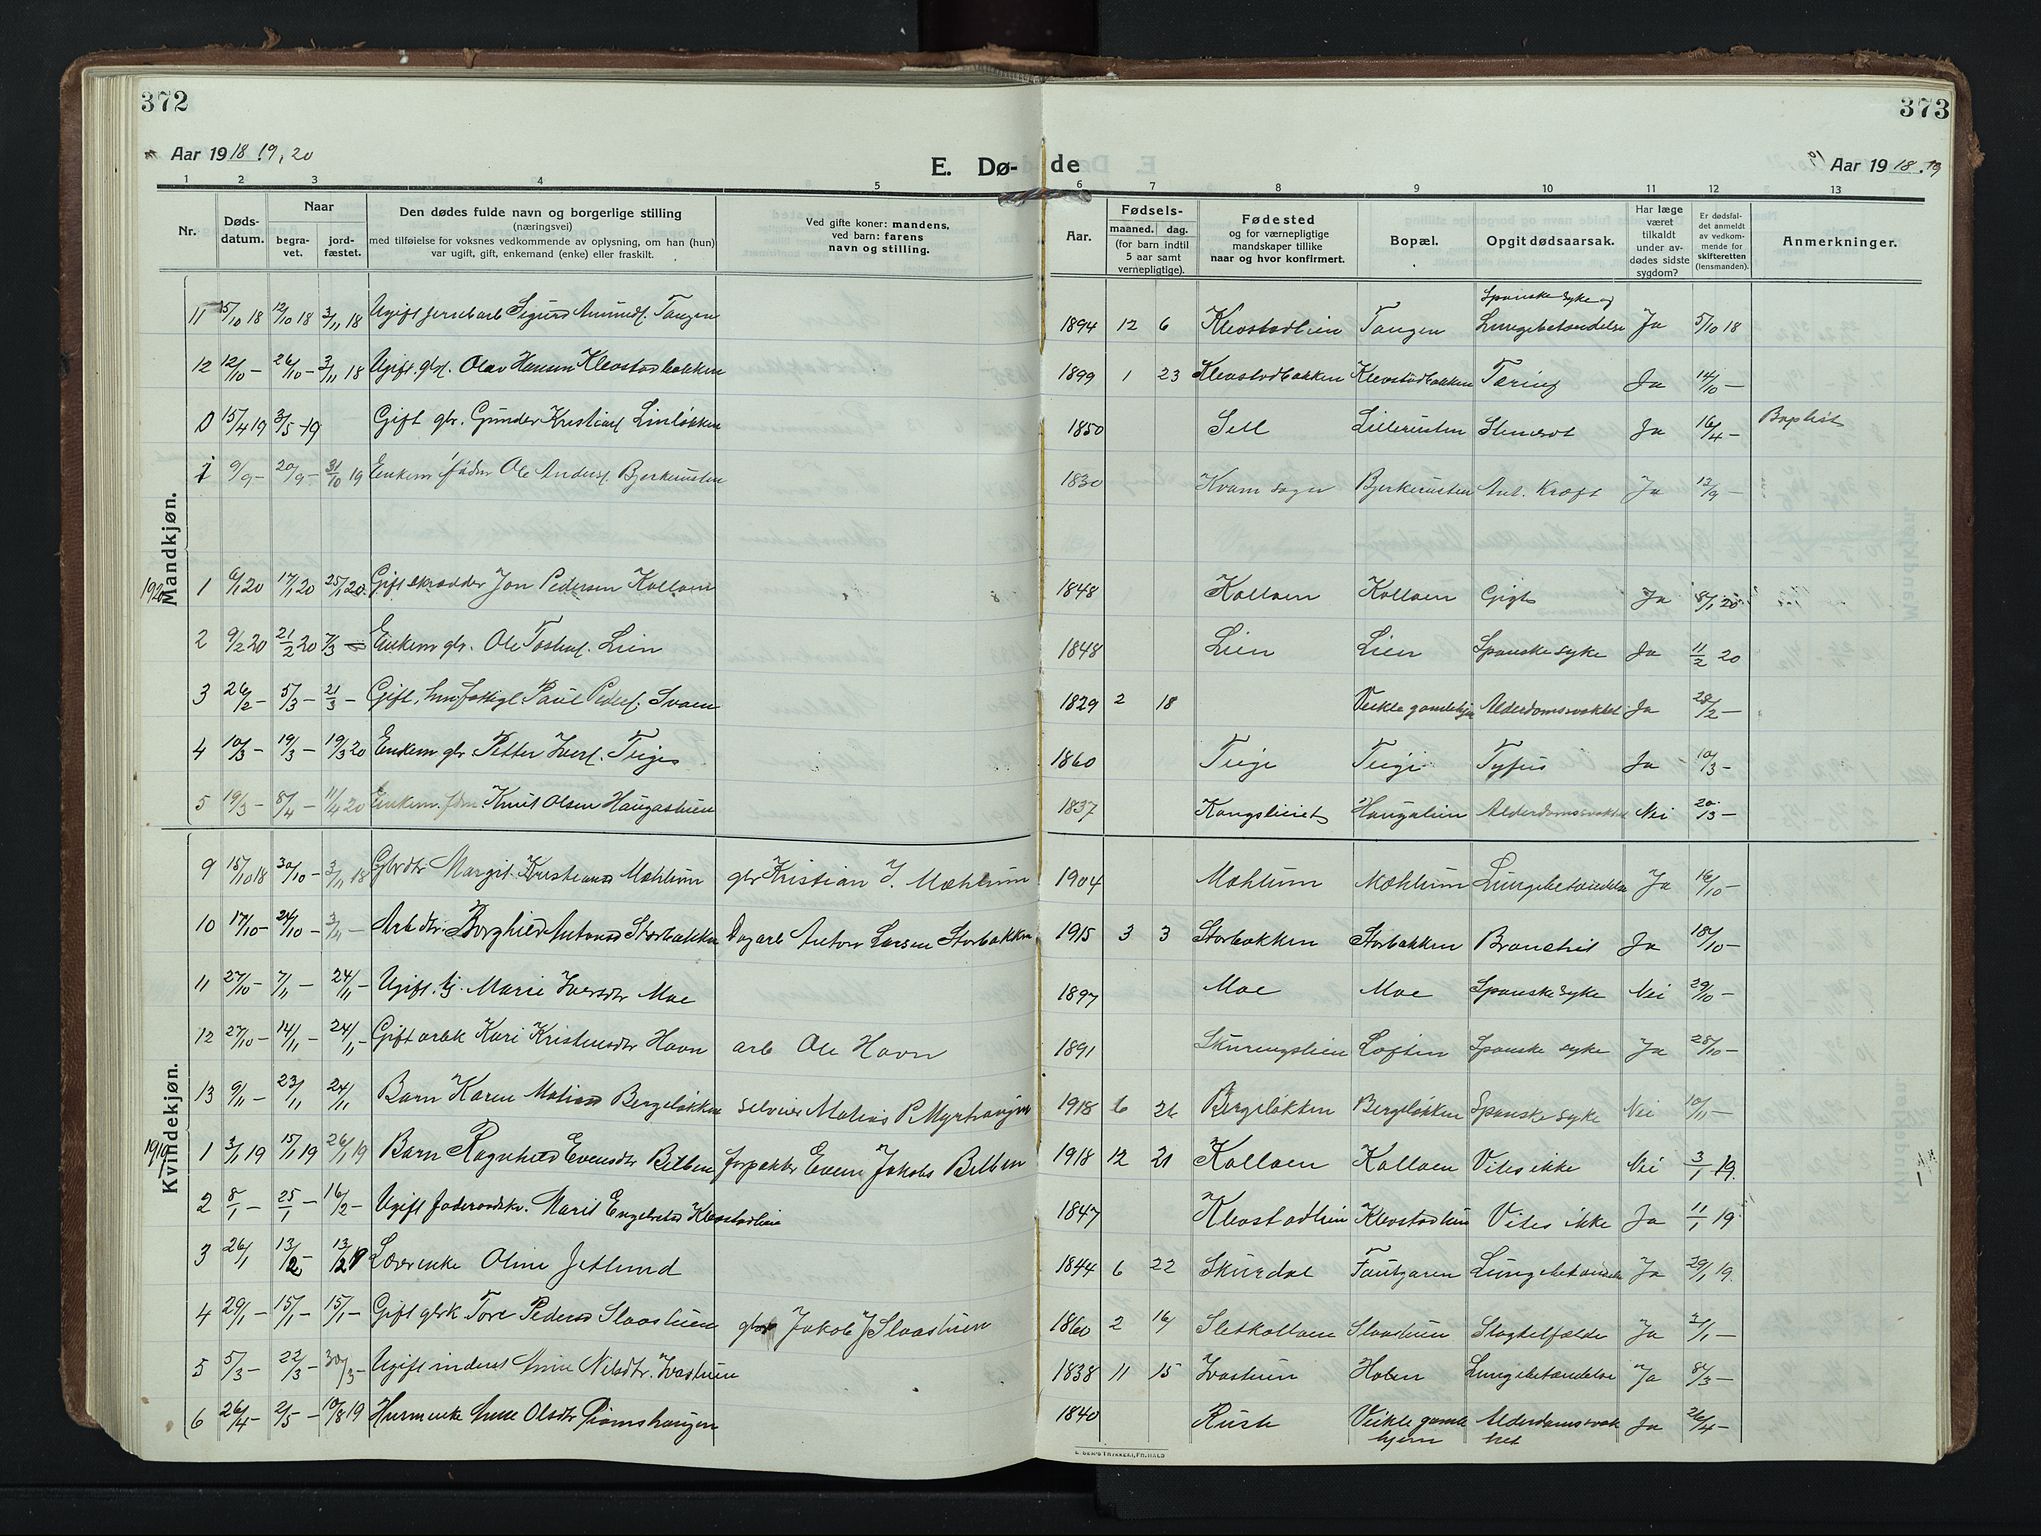 372
373
Aar 1918. 19, 20
E. Dø-
de
Aar 1918. 19
1 2 3 4 5 6 7 8 9 10 11 12 13
Nr.
Døds-
datum.
Naar
begra-
vet.
jord-
fæstet.
Den dødes fulde navn og borgerlige stilling
(næringsvei)
med tilføielse for voksnes vedkommende av oplysning, om han (hun)
var ugift, gift, enkemand (enke) eller fraskilt.
Ved gifte koner: mandens,
ved barn: farens
navn og stilling.
Fødsels-
Aar.
maaned.
dag.
(for barn indtil
5 aar samt
vernepligtige).
Fødested
og for værnepligtige
mandskaper tillike
naar og hvor konfirmert.
Bopæl.
Opgit dødsaarsak.
Har læge
været
tilkaldt
under av-
dødes sidste
sygdom?
Er dødsfal-
det anmeldt
av vedkom-
mende for
skifteretten
(lensmanden).
Anmerkninger.
Mandkjøn.
11 5/10 18 12/10 18 3/11 18 Ugift jernebarb Sigurd Amunds. Tangen 1894 12 6 Klevstadlien Tangen Spanske syke og Lungebetændelse Ja 5/10 18
12 12/10 – 26/10 – 3/11 18 Ugift. gbs. Olav Hansen Klevstadbakken 1899 1 23 Klevstadbakken Klevstadbakken Tæring Ja 14/10 –
D 15/4 19 3/5 – 19 Gift gbr. Gunder Kristians. Linløkken 1850 Sell Lillerusten Ja 16/4 – Baptist
1 9/9 – 20/9 – 31/10 19 Enkem. føder. Ole Anders. Bjerkerusten 1830 Kvam sogn Bjerkerusten Ant. Kræft Ja 12/9 –
1920
1 6/1 20 17/1 20 25/1 20. Gift skrædder Jon Pedersen Kollaen 1848 Kollaen Kollaen Gigt Ja 8/1 20
2 9/2 20 21/2 20 7/3 – Enkem gbr. Ole Tostens. Lien 1848 Lien Lien Spanske syke Ja 11/2 20
3 26/2 – 5/3 – 21/3 – Gift, Paul Peders. Svaen 1829 2 18 Veikle gamlehjem Alderdomssvakhet Ja 28/2 –
4 10/3 – 19/3 – 19/3 20 Enkem gbr Petter Ivers. Teige 1860 Teige Teige Tyfus Ja 10/3 –
5 19/3 – 8/4 – 11/4 20 Enkem. fdr. Knut Olsen Haugastuen 1837 Kongslieiet Haugalien Alderdomssvakhet Nei 20/3 –
Kvindekjøn.
9 15/10 18 30/10 – 3/11 18 Gbrdtr Margit Kristiansd Mæhlum gbr Kristian J. Mæhlum 1904 Mæhlum Mæhlum Lungebetændelse Ja 16/10 –
10 17/10 – 24/10 – 3/4 – Arb dtr. Borghild Antonsd Storbakken Dagarb Anton Larsen Storbakken 1915 3 3 Storbakken Storbakken Bronchit Ja 18/10 –
11 27/10 – 7/11 – 24/11 – Ugift. tj. Marie Iversdtr Moe 1897 Moe Moe Spanske syke Nei 29/10 –
12 27/10 – 14/11 – 24/11 – Gift arbk Kari Kristensdtr Havn arb Ole Havn 1891 Skuringslien Loften Spanske syke Ja 28/10 –
13 9/11 – 23/11 24/11 Barn Karen Matiasd Bergeløkken selveier Matias P. Myrhaugen 1918 6 26 Bergeløkken Bergeløkken Spanske syke Nei 10/11 –
1919
1 3/1 19 15/1 19 26/1 19 Barn Ragnhild Evensdtr Bilben forpakter Even Jakobs Bilben 1918 12 21 Kollaen Kollaen Vites ikke Nei 3/1 19.
2 8/1 – 25/1 – 16/2 – Ugift føderaadsk. Marit Engebretsd Klevstadlien 1847 Klevstadlien Klevstadlien Vites ikke Ja 11/1 19
3 26/1 13/2 – 13/2 19 Lærerenke Oline Jetlund 1844 6 22 Skurdal Fautgaren Lungebetændelse Ja 29/1 19.
4 29/1 – 15/1 – 15/1 – Gift gbrk Tore Pedersd Slaastuen gbr Jakob J Slaastuen 1860 2 16 Sletkollaene Slaastuen Slagtilfælde Ja 2/1 –
5 5/3 – 22/3 – 30/3 – Ugift inderst Anne Nilsdtr. Ivastuen 1838 11 15 Ivastuen Holen Lungebetændelse Ja 8/3 –
6 26/4 – 2/5 – 10/8 19 Husmenke Anne Olsdtr Pramshaugen 1840 Rusten Veikle gamle hjem Alderdomssvakhet Ja 26/4 –
E. SEM'S TRYKKERI, FR.HALD